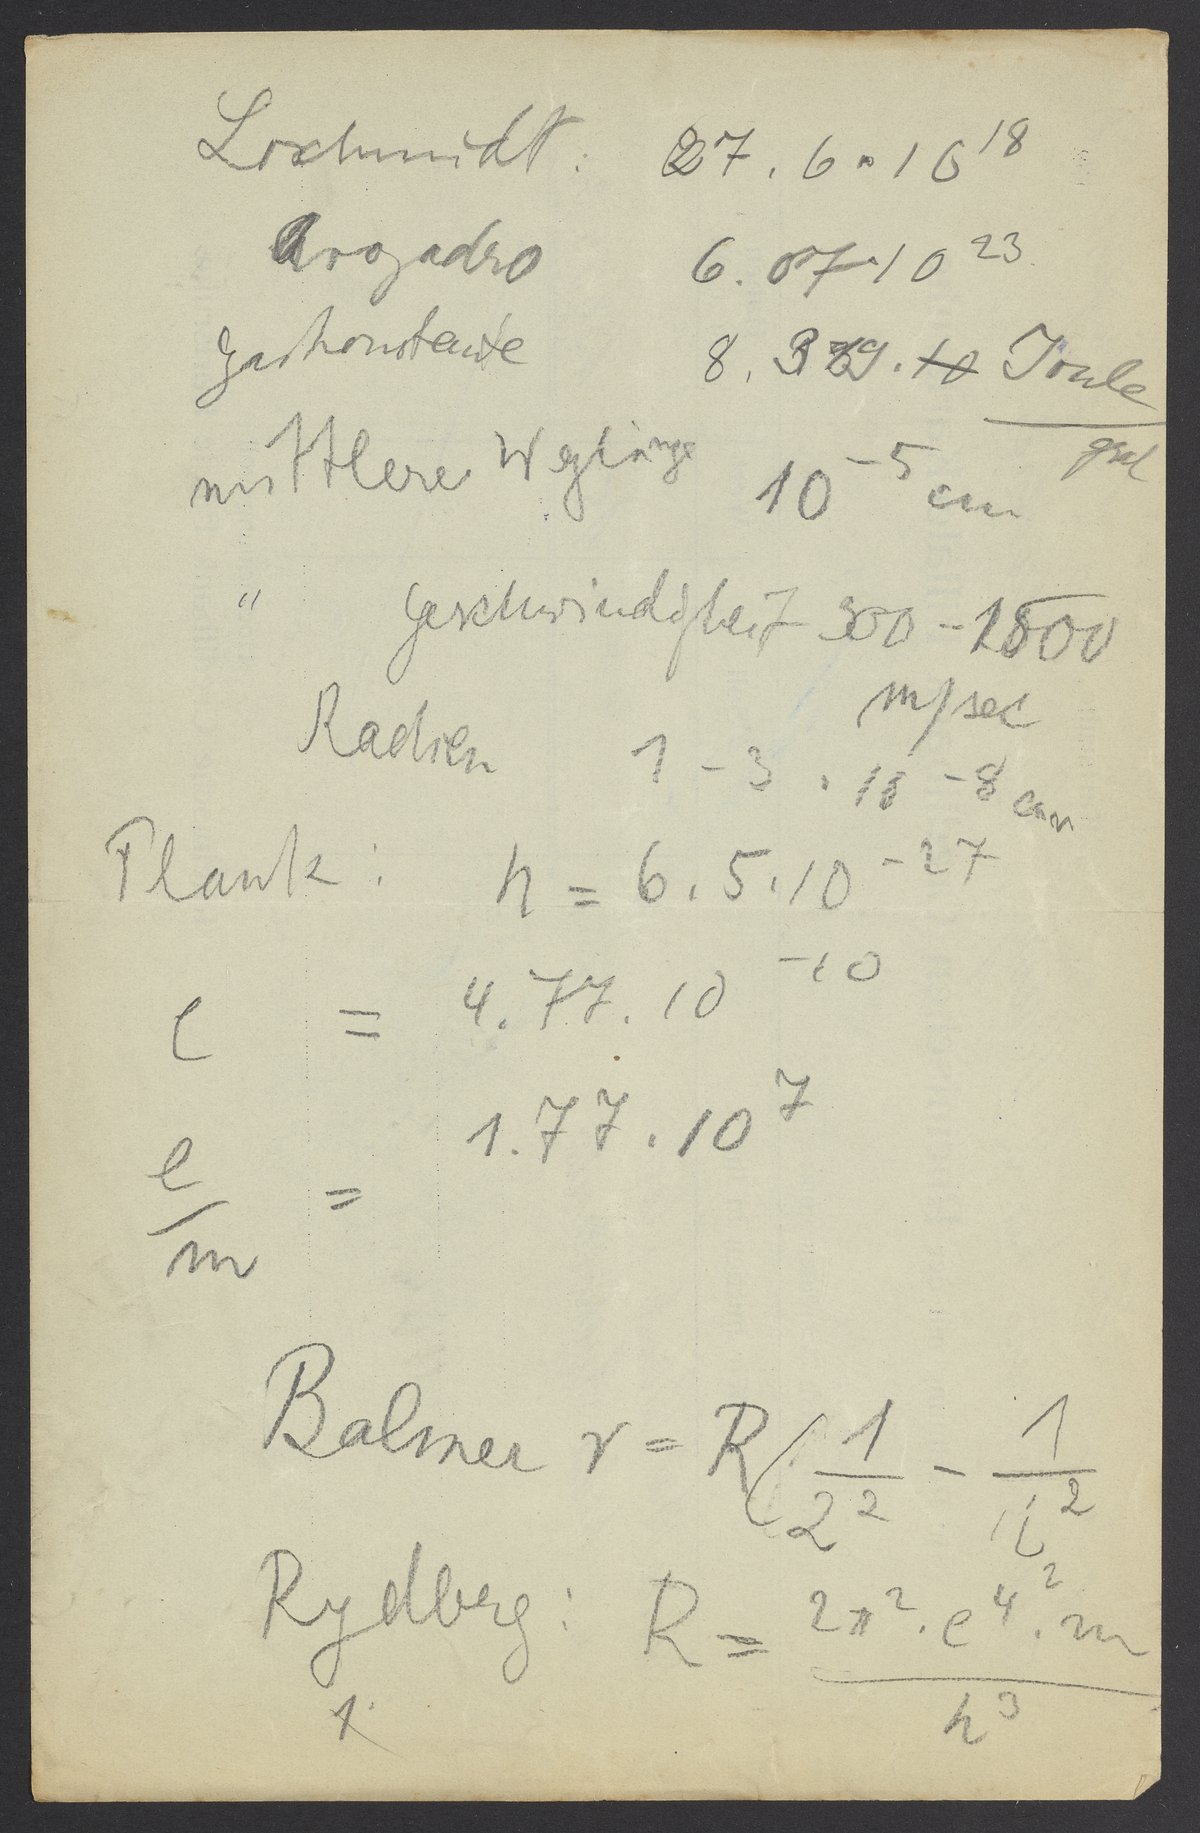 Loschmidt: 27.6 · 10^18
Avogadro 6.07 · 10^23
Gaskonstante 8. · Joule
grad
mittlere Weglänge 10^-5 cm
" Geschwindigkeit 300 - 1800
m/sec
Radien 1 - 3 · 10^-8 cm
Plank: h = 6.5 · 10^-27
e = 4.77 · 10^-10
e/m = 1.77 · 10^7
Balmer ν = R(1/2^2 - 1/n^2
Rydberg: R = 2π^2 · e^4 · m / h^3